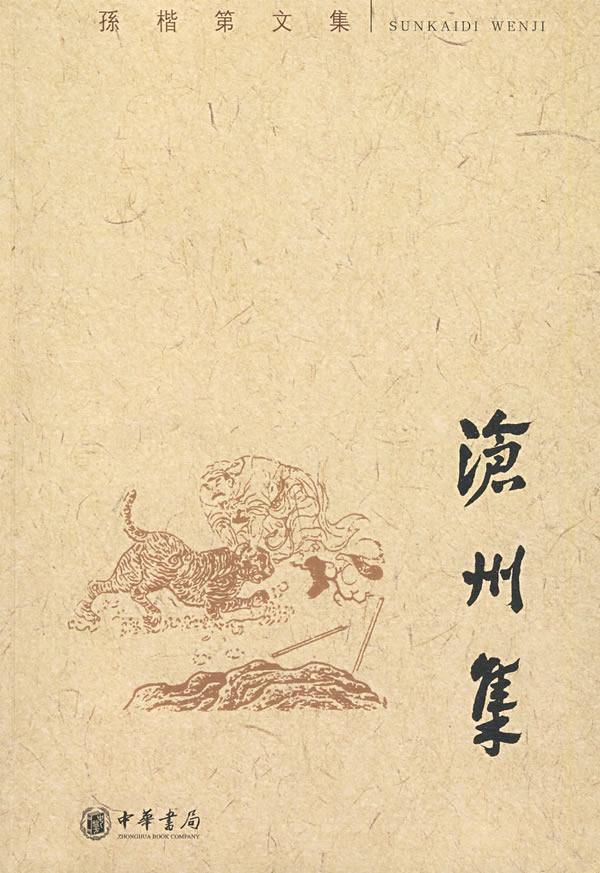 孫楷第文集 SUNKAIDI WENJI
滄州集
中華書局
ZHONGHUA BOOK COMPANY